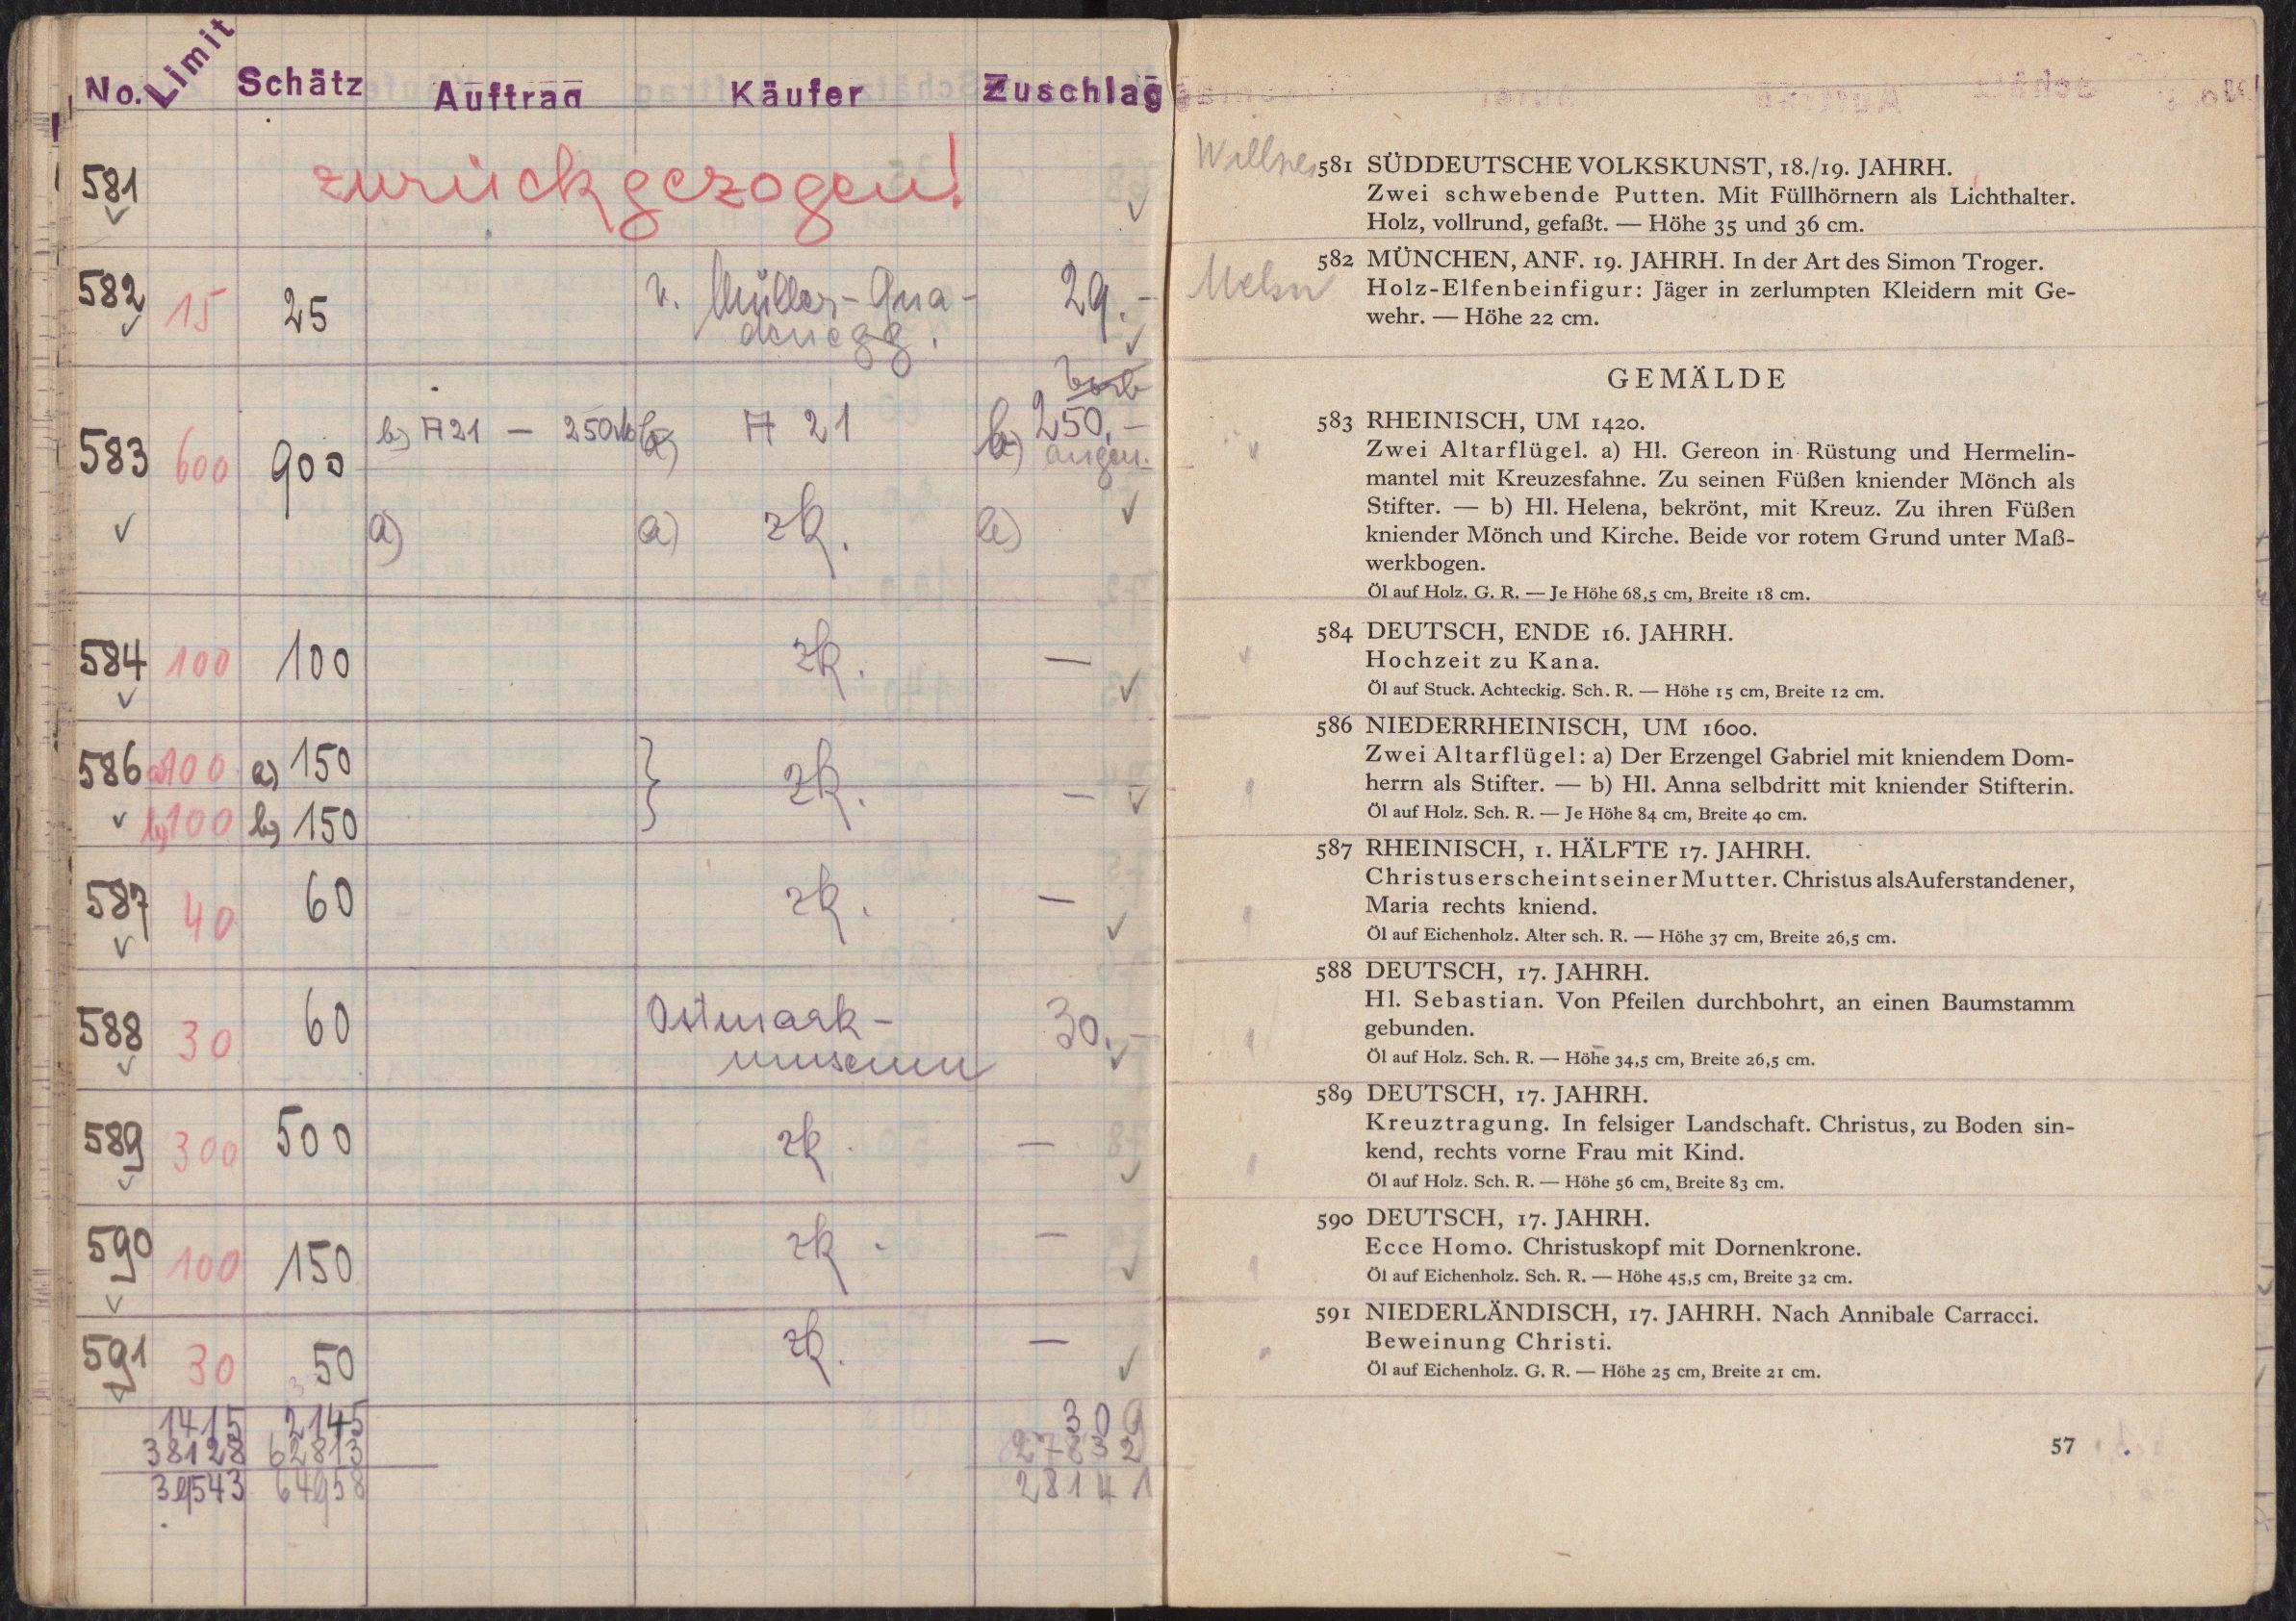 No. Limit Schätz Auftrag Käufer Zuschlag
581 zurückgezogen!
582 15 25 v. Müller-Gna- 29.-
denegg.
583 600 900 b) A 21 — 250 b) A 21 b) 250.-
angen.
a) a) zk.
584 100 100 zk. —
586 a) 100 a) 150 } zk. —
b) 100 b) 150
587 40 60 zk. —
588 30 60 Ostmark- 30.-
museum
589 300 500 zk. —
590 100 150 zk. —
591 30 50 zk. —
1415 2145 309
38128 62813 27832
39543 64958 28141
581 SÜDDEUTSCHE VOLKSKUNST, 18./19. JAHRH.
Zwei schwebende Putten. Mit Füllhörnern als Lichthalter.
Holz, vollrund, gefaßt. — Höhe 35 und 36 cm.
582 MÜNCHEN, ANF. 19. JAHRH. In der Art des Simon Troger.
Holz-Elfenbeinfigur: Jäger in zerlumpten Kleidern mit Ge-
wehr. — Höhe 22 cm.
GEMÄLDE
583 RHEINISCH, UM 1420.
Zwei Altarflügel. a) Hl. Gereon in Rüstung und Hermelin-
mantel mit Kreuzesfahne. Zu seinen Füßen kniender Mönch als
Stifter. — b) Hl. Helena, bekrönt, mit Kreuz. Zu ihren Füßen
kniender Mönch und Kirche. Beide vor rotem Grund unter Maß-
werkbogen.
Öl auf Holz. G. R. — Je Höhe 68,5 cm, Breite 18 cm.
584 DEUTSCH, ENDE 16. JAHRH.
Hochzeit zu Kana.
Öl auf Stuck. Achteckig. Sch. R. — Höhe 15 cm, Breite 12 cm.
586 NIEDERRHEINISCH, UM 1600.
Zwei Altarflügel: a) Der Erzengel Gabriel mit kniendem Dom-
herrn als Stifter. — b) Hl. Anna selbdritt mit kniender Stifterin.
Öl auf Holz. Sch. R. — Je Höhe 84 cm, Breite 40 cm.
587 RHEINISCH, 1. HÄLFTE 17. JAHRH.
Christus erscheint seiner Mutter. Christus als Auferstandener,
Maria rechts kniend.
Öl auf Eichenholz. Alter sch. R. — Höhe 37 cm, Breite 26,5 cm.
588 DEUTSCH, 17. JAHRH.
Hl. Sebastian. Von Pfeilen durchbohrt, an einen Baumstamm
gebunden.
Öl auf Holz. Sch. R. — Höhe 34,5 cm, Breite 26,5 cm.
589 DEUTSCH, 17. JAHRH.
Kreuztragung. In felsiger Landschaft. Christus, zu Boden sin-
kend, rechts vorne Frau mit Kind.
Öl auf Holz. Sch. R. — Höhe 56 cm, Breite 83 cm.
590 DEUTSCH, 17. JAHRH.
Ecce Homo. Christuskopf mit Dornenkrone.
Öl auf Eichenholz. Sch. R. — Höhe 45,5 cm, Breite 32 cm.
591 NIEDERLÄNDISCH, 17. JAHRH. Nach Annibale Carracci.
Beweinung Christi.
Öl auf Eichenholz. G. R. — Höhe 25 cm, Breite 21 cm.
57